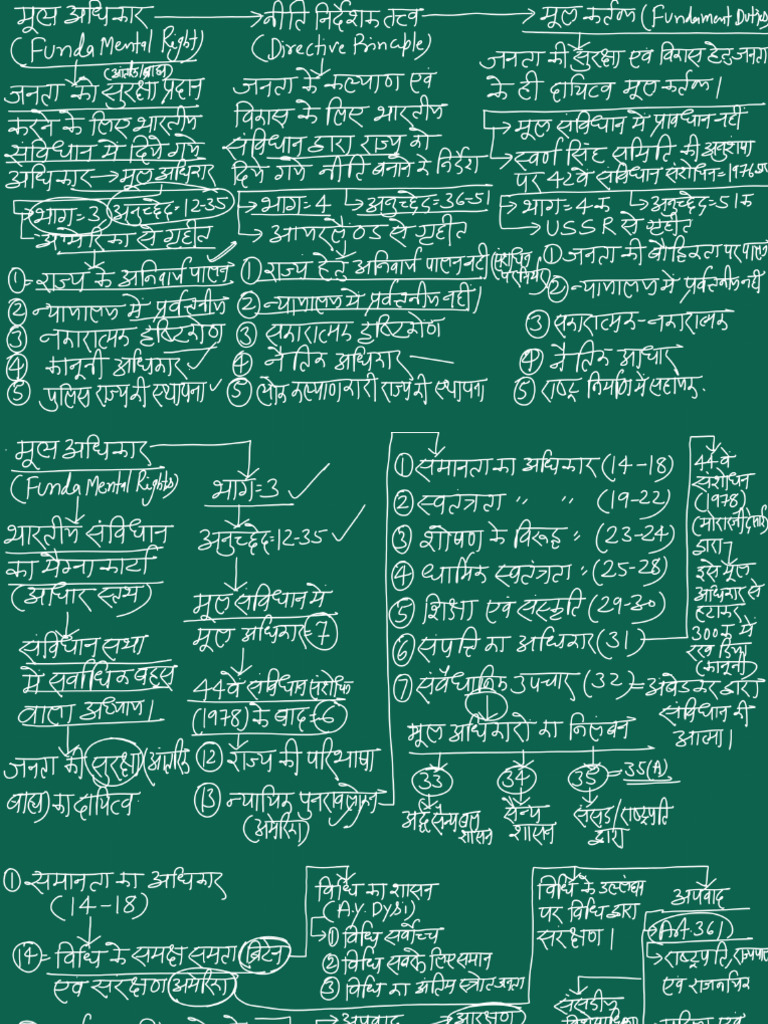 मूल अधिकार
(FundaMental Right)
(आंतरिक/बाह्य)
जनता को सुरक्षा प्रदान
करने के लिए भारतीय
संविधान में दिये गये
अधिकार → मूल अधिकार
→ भाग=3 अनुच्छेद=12-35
→ अमेरिका से गृहीत
①= राज्य के अनिवार्य पालन
② न्यायालय में प्रर्वतनीय
③ नकारात्मक दृष्टिकोण
④ कानूनी अधिकार ✓
⑤ पुलिस राज्य की स्थापना ✓
नीति निर्देशक तत्व
(Directive Principle)
जनता के कल्याण एवं
विकास के लिए भारतीय
संविधान द्वारा राज्य को
दिये गये नीति बनाने के निर्देश
→ भाग=4 → अनुच्छेद=36-51
→ आयरलैण्ड से गृहीत
① राज्य हेतु अनिवार्य पालन नहीं
② न्यायालय में प्रर्वतनीय नहीं।
③ सकारात्मक दृष्टिकोण
④ नैतिक अधिकार
⑤ लोक कल्याणकारी राज्य की स्थापना
मूल कर्तव्य (Fundament Dutys
जनता की सुरक्षा एवं विकास हेतु जनता
के ही दायित्व मूल कर्तव्य।
→ मूल संविधान में प्रावधान नहीं
→ स्वर्ण सिंह समिति की अनुशंषा
पर 42वें संविधान संशोधन=1976
→ भाग=4-क → अनुच्छेद=51क
→ USSR से गृहीत
① जनता की बौद्धिकता पर
② न्यायालय में प्रर्वतनीय नहीं
③ सकारात्मक-नकारात्मक
④ नैतिक आधार
⑤ राष्ट्र निर्माण में सहायक.
मूल अधिकार
(FundaMental Rights)
भारतीय संविधान
का मैग्ना कार्टा
(आधार स्तम्भ)
संविधान सभा
में सर्वाधिक बहस
वाला अध्याय।
जनता की सुरक्षा (आंतरिक
बाह्य) का दायित्व
भाग=3 ✓
अनुच्छेद=12-35 ✓
मूल संविधान में
मूल अधिकार=7
44वें संविधान संशोधन
(1978) के बाद=6
⑫ राज्य की परिभाषा
⑬ न्यायिक पुनरावलोकन
(अमेरिका)
① समानता का अधिकार (14-18)
② स्वतंत्रता " " (19-22)
③ शोषण के विरूद्ध " (23-24)
④ धार्मिक स्वतंत्रता " (25-28)
⑤ शिक्षा एवं संस्कृति (29-30)
⑥ संपति का अधिकार (31)
⑦ संवैधानिक उपचार (32) = अंबेडकर द्वारा
संविधान की
आत्मा।
44वें
संशोधन
(1978)
(मोरारजी देसाई)
द्वारा
इसे मूल
अधिकार से
हटाकर
300क में
रख दिया
(कानूनी)
मूल अधिकारो का निलंबन
33 34 35 = 35(A)
अर्द्धसैन्य बल
शासन
सैन्य
शासन
संसद/राष्ट्रपति
द्वारा
① समानता का अधिकार
(14-18)
⑭= विधि के समक्ष समता ब्रिटेन
एवं संरक्षण अमेरिका
विधि का शासन
(A.V. Dysi)
① विधि सर्वोच्च
② विधि सबके लिए समान
③ विधि का अंतिम स्त्रोत जनता
विधि के उल्लंघन
पर विधि द्वारा
संरक्षण।
अपवाद
Art 361
→ राष्ट्रपति, राज्यपाल
एवं राजनयिक
संसदीय
→ अपवाद → आरक्षण